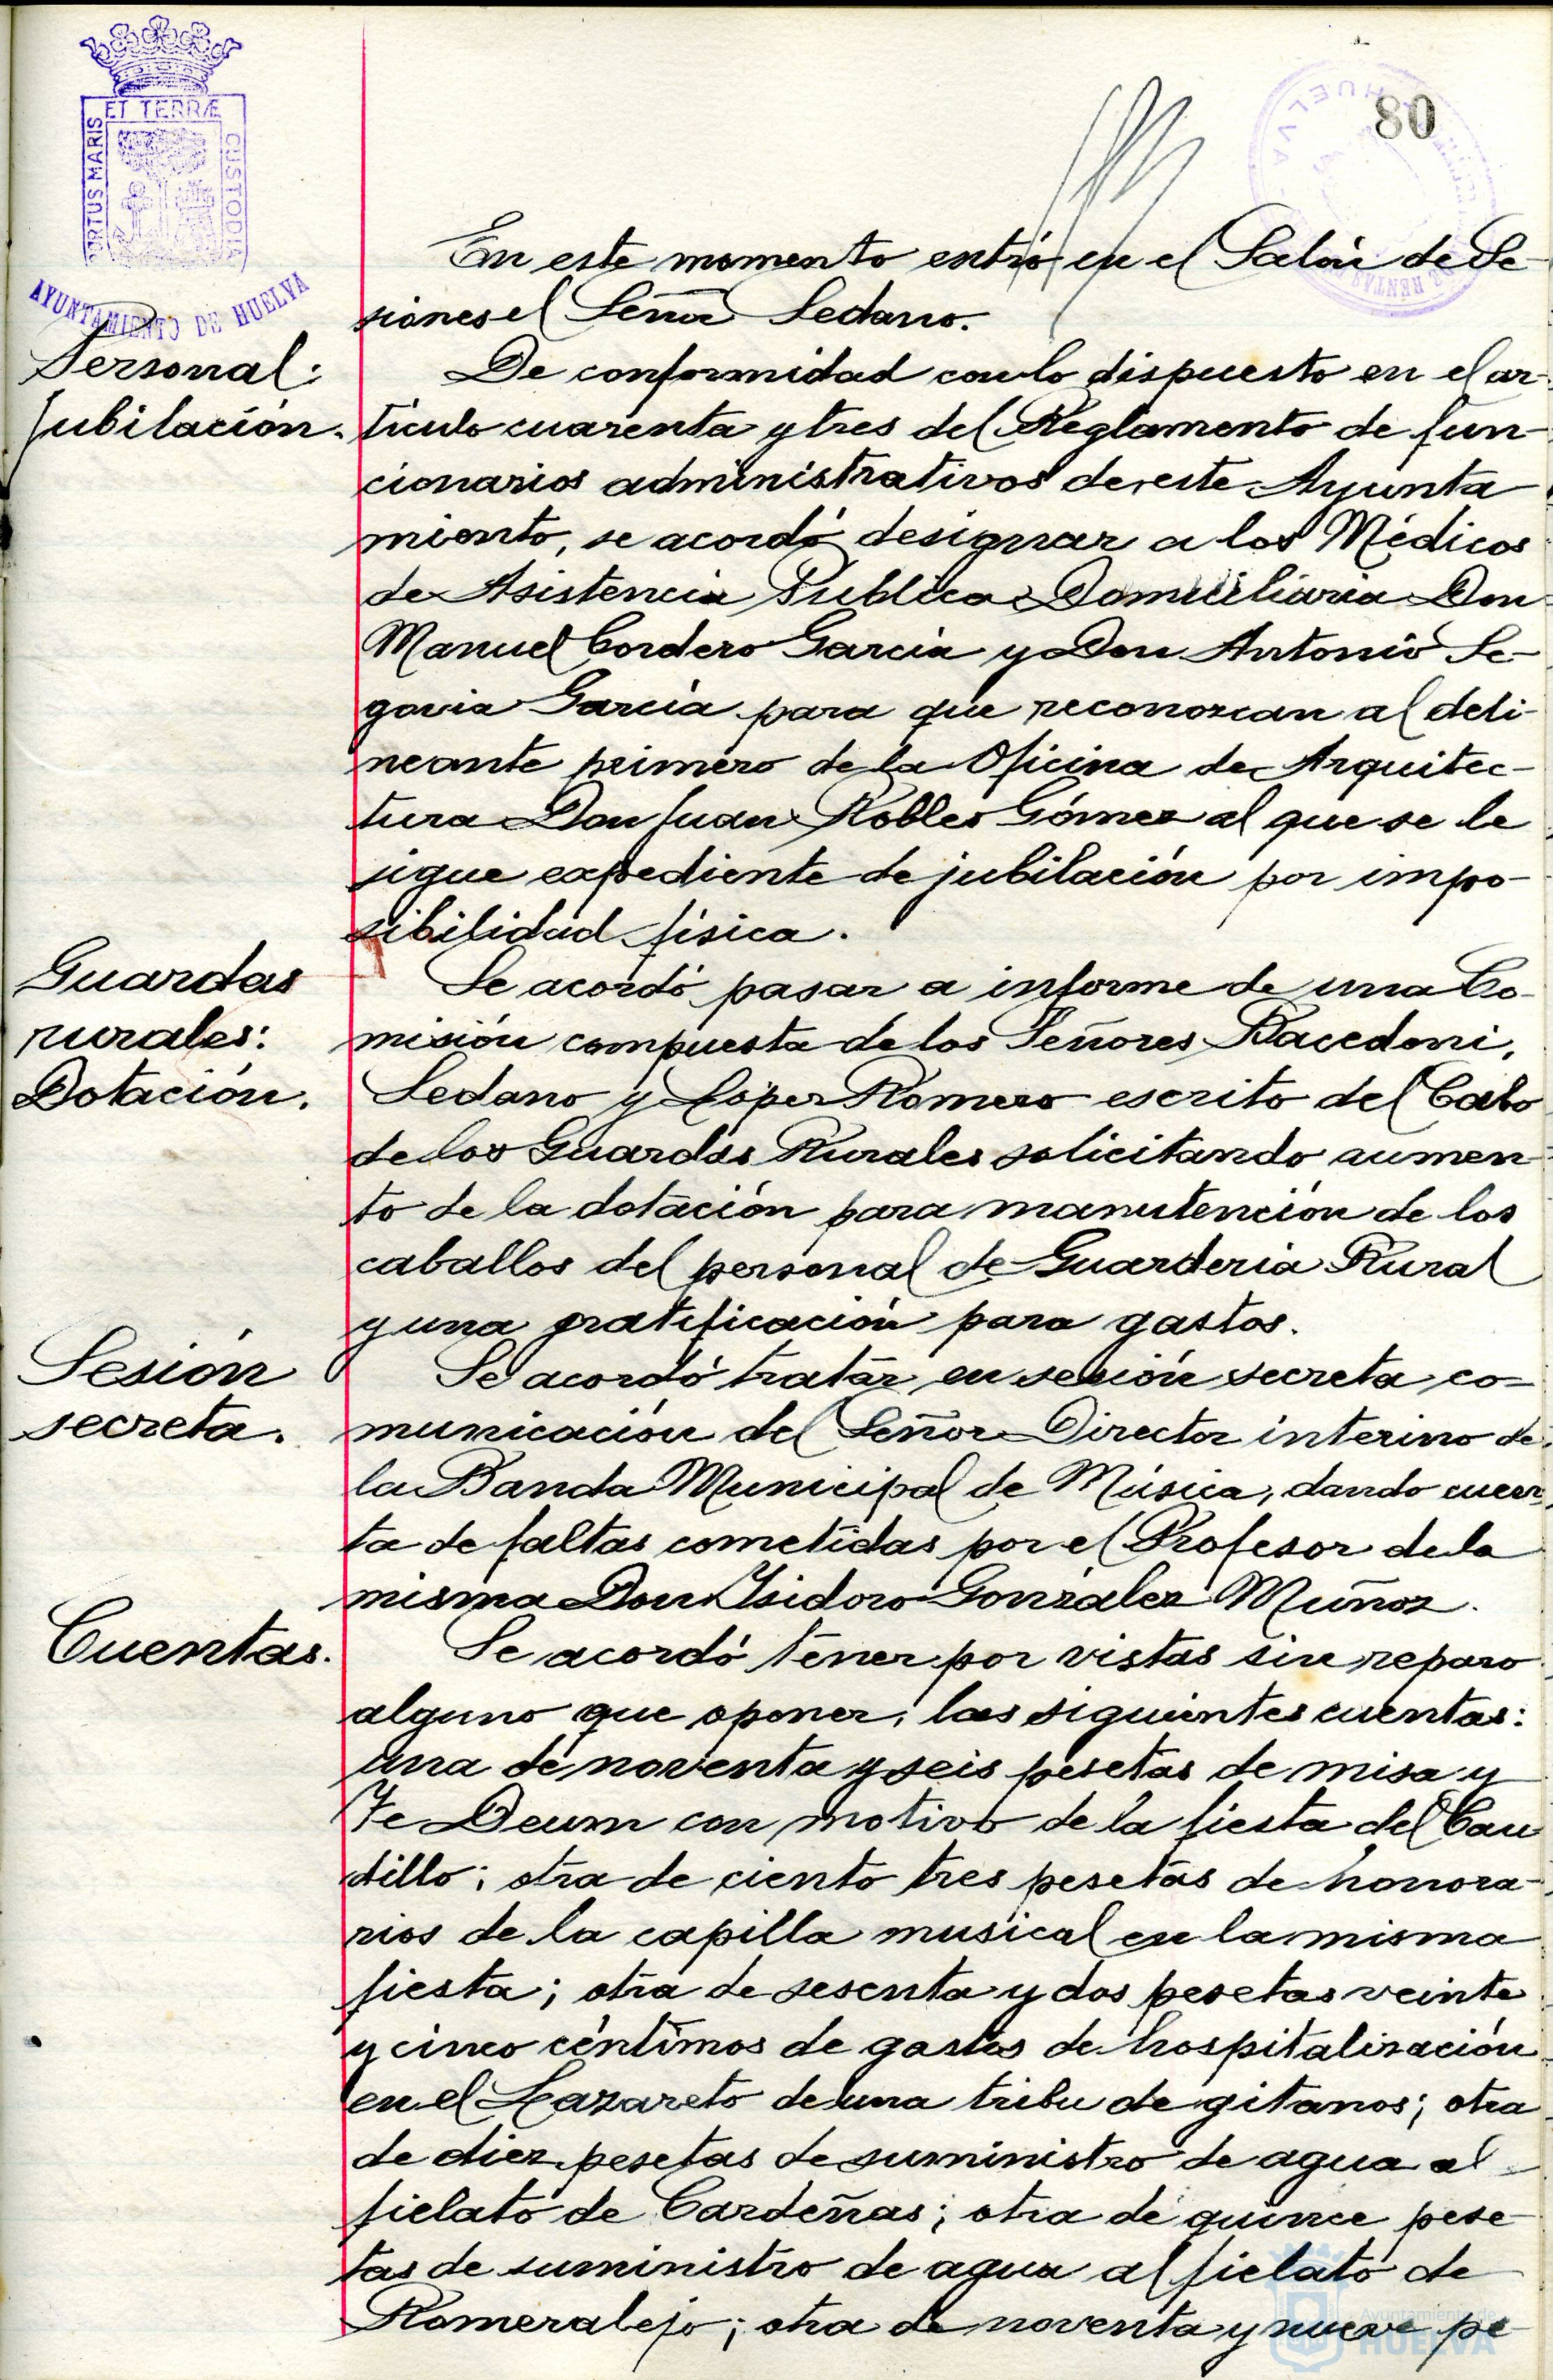 80
PORTUS MARIS
ET TERRÆ
CUSTODIA
AYUNTAMIENTO DE HUELVA
HUELVA
RENTAS
En este momento entró en el Salón de Se-
siones el Señor Sedano.
Personal:
Jubilación.
De conformidad con lo dispuesto en el ar-
tículo cuarenta y tres del Reglamento de fun-
cionarios administrativos de este Ayunta
miento, se acordó designar a los Médicos
de Asistencia Publica Domiciliaria Don
Manuel Cordero García y Don Antonio Se-
govia García para que reconozcan al deli-
neante primero de la Oficina de Arquitec-
tura Don Juan Robles Gómez al que se le
sigue expediente de jubilación por impo-
sibilidad física.
Guardas
rurales:
Dotación.
Se acordó pasar a informe de una Co-
misión compuesta de los Señores Bacedoni,
Sedano y López Romero escrito del Cabo
de los Guardas Rurales solicitando aumen-
to de la dotación para manutención de los
caballos del personal de Guarderia Rural
y una gratificación para gastos.
Sesión
secreta.
Se acordó tratar en sesión secreta co-
municación del Señor Director interino de
la Banda Municipal de Música, dando cuen
ta de faltas cometidas por el Profesor de la
misma Don Isidoro González Muñoz.
Cuentas.
Se acordó tener por vistas sin reparo
alguno que oponer, las siguientes cuentas:
una de noventa y seis pesetas de misa y
Te Deum con motivo de la fiesta del Cau
dillo; otra de ciento tres pesetas de honora-
rios de la capilla musical en la misma
fiesta; otra de sesenta y dos pesetas veinte
y cinco céntimos de gastos de hospitalización
en el Lazareto de una tribu de gitanos; otra
de diez pesetas de suministro de agua al
fielato de Cardeñas; otra de quince pese-
tas de suministro de agua al fielato de
Romeralejo; otra de noventa y nueve pe-
Ayuntamiento de
HUELVA